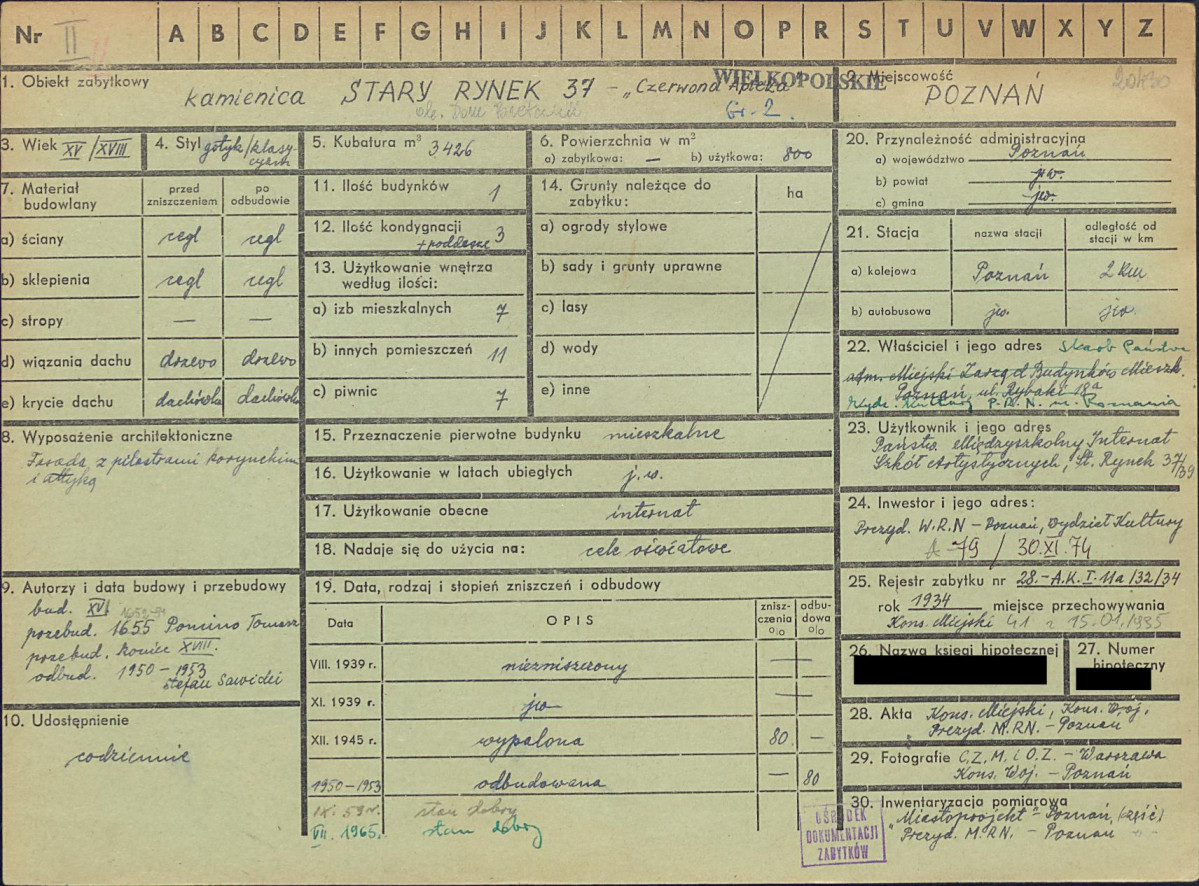 Nr II A B C D E F G H I J K L M N O P R S T U V W X Y Z
1. Obiekt zabytkowy
kamienica STARY RYNEK 37 - „Czerwona Apteka"
WIELKOPOLSKIE
Gr. 2.
2. Miejscowość
POZNAŃ
3. Wiek XV/XVIII
4. Styl gotyk/klasycyzm
5. Kubatura m³ 3426
6. Powierzchnia w m²
a) zabytkowa: — b) użytkowa: 800
7. Materiał budowlany
przed zniszczeniem
po odbudowie
a) ściany cegł cegł
b) sklepienia cegł cegł
c) stropy — —
d) wiązania dachu drzewo drzewo
e) krycie dachu dachówka dachówka
8. Wyposażenie architektoniczne
Fasada z pilastrami korynckimi
i attyką
9. Autorzy i data budowy i przebudowy
bud. XV
przebud. 1655 Pomino Tomasz
przebud. koniec XVIII.
odbud. 1950-1953
Stefan Sawicki
10. Udostępnienie
codziennie
11. Ilość budynków 1
12. Ilość kondygnacji
+poddasze 3
13. Użytkowanie wnętrza
według ilości:
a) izb mieszkalnych 7
b) innych pomieszczeń 11
c) piwnic 7
14. Grunty należące do
zabytku:
ha
a) ogrody stylowe
b) sady i grunty uprawne
c) lasy
d) wody
e) inne
15. Przeznaczenie pierwotne budynku mieszkalne
16. Użytkowanie w latach ubiegłych j.w.
17. Użytkowanie obecne internat
18. Nadaje się do użycia na: cele oświatowe
19. Data, rodzaj i stopień zniszczeń i odbudowy
Data OPIS zniszczenia o|o odbudowa o|o
VIII. 1939 r. niezniszczony —
XI. 1939 r. jw —
XII. 1945 r. wypalona 80 —
1950-1953 odbudowana — 80
IX. 59 r. stan dobry
VII. 1965. stan dobry
20. Przynależność administracyjna
a) województwo Poznań
b) powiat jw.
c) gmina jw.
21. Stacja nazwa stacji odległość od stacji w km
a) kolejowa Poznań 2 km
b) autobusowa jw. jw.
22. Właściciel i jego adres Skarb Państwa
adm. Miejski Zarząd Budynków Mieszk.
Poznań, ul. Rybaki 18a
Wydz. Kultury P.R.N. m. Poznania
23. Użytkownik i jego adres
Państw. Międzyszkolny Internat
Szkół Artystycznych, St. Rynek 37/39
24. Inwestor i jego adres:
Prezyd. W.R.N - Poznań, wydział Kultury
A-79 / 30.XI.74
25. Rejestr zabytku nr 28.-A.K.I-11a/32/34
rok 1934 miejsce przechowywania
Kons. Miejski 41 z 15.01.1935
26. Nazwa księgi hipotecznej
27. Numer
hipoteczny
28. Akta Kons. Miejski, Kons. Woj.
Prezyd. M.RN. - Poznań
29. Fotografie C.Z.M. i O.Z. - Warszawa
Kons. Woj. - Poznań
30. Inwentaryzacja pomiarowa
"Miastoprojekt" Poznań, (część)
Prezyd. M.RN. - Poznań
OŚRODEK
DOKUMENTACJI
ZABYTKÓW